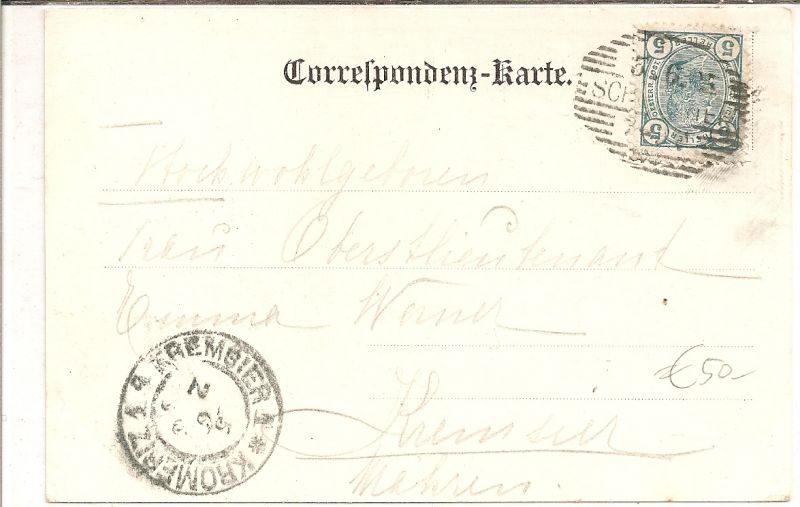 Correspondenz-Karte.
5 5
5
SCH
Hochwohlgeboren
Frau Oberstlieutenant
Emma Werner
€50-
Kremsier
Mähren.
KREMSIER 1 * KROMĚŘÍŽ 1